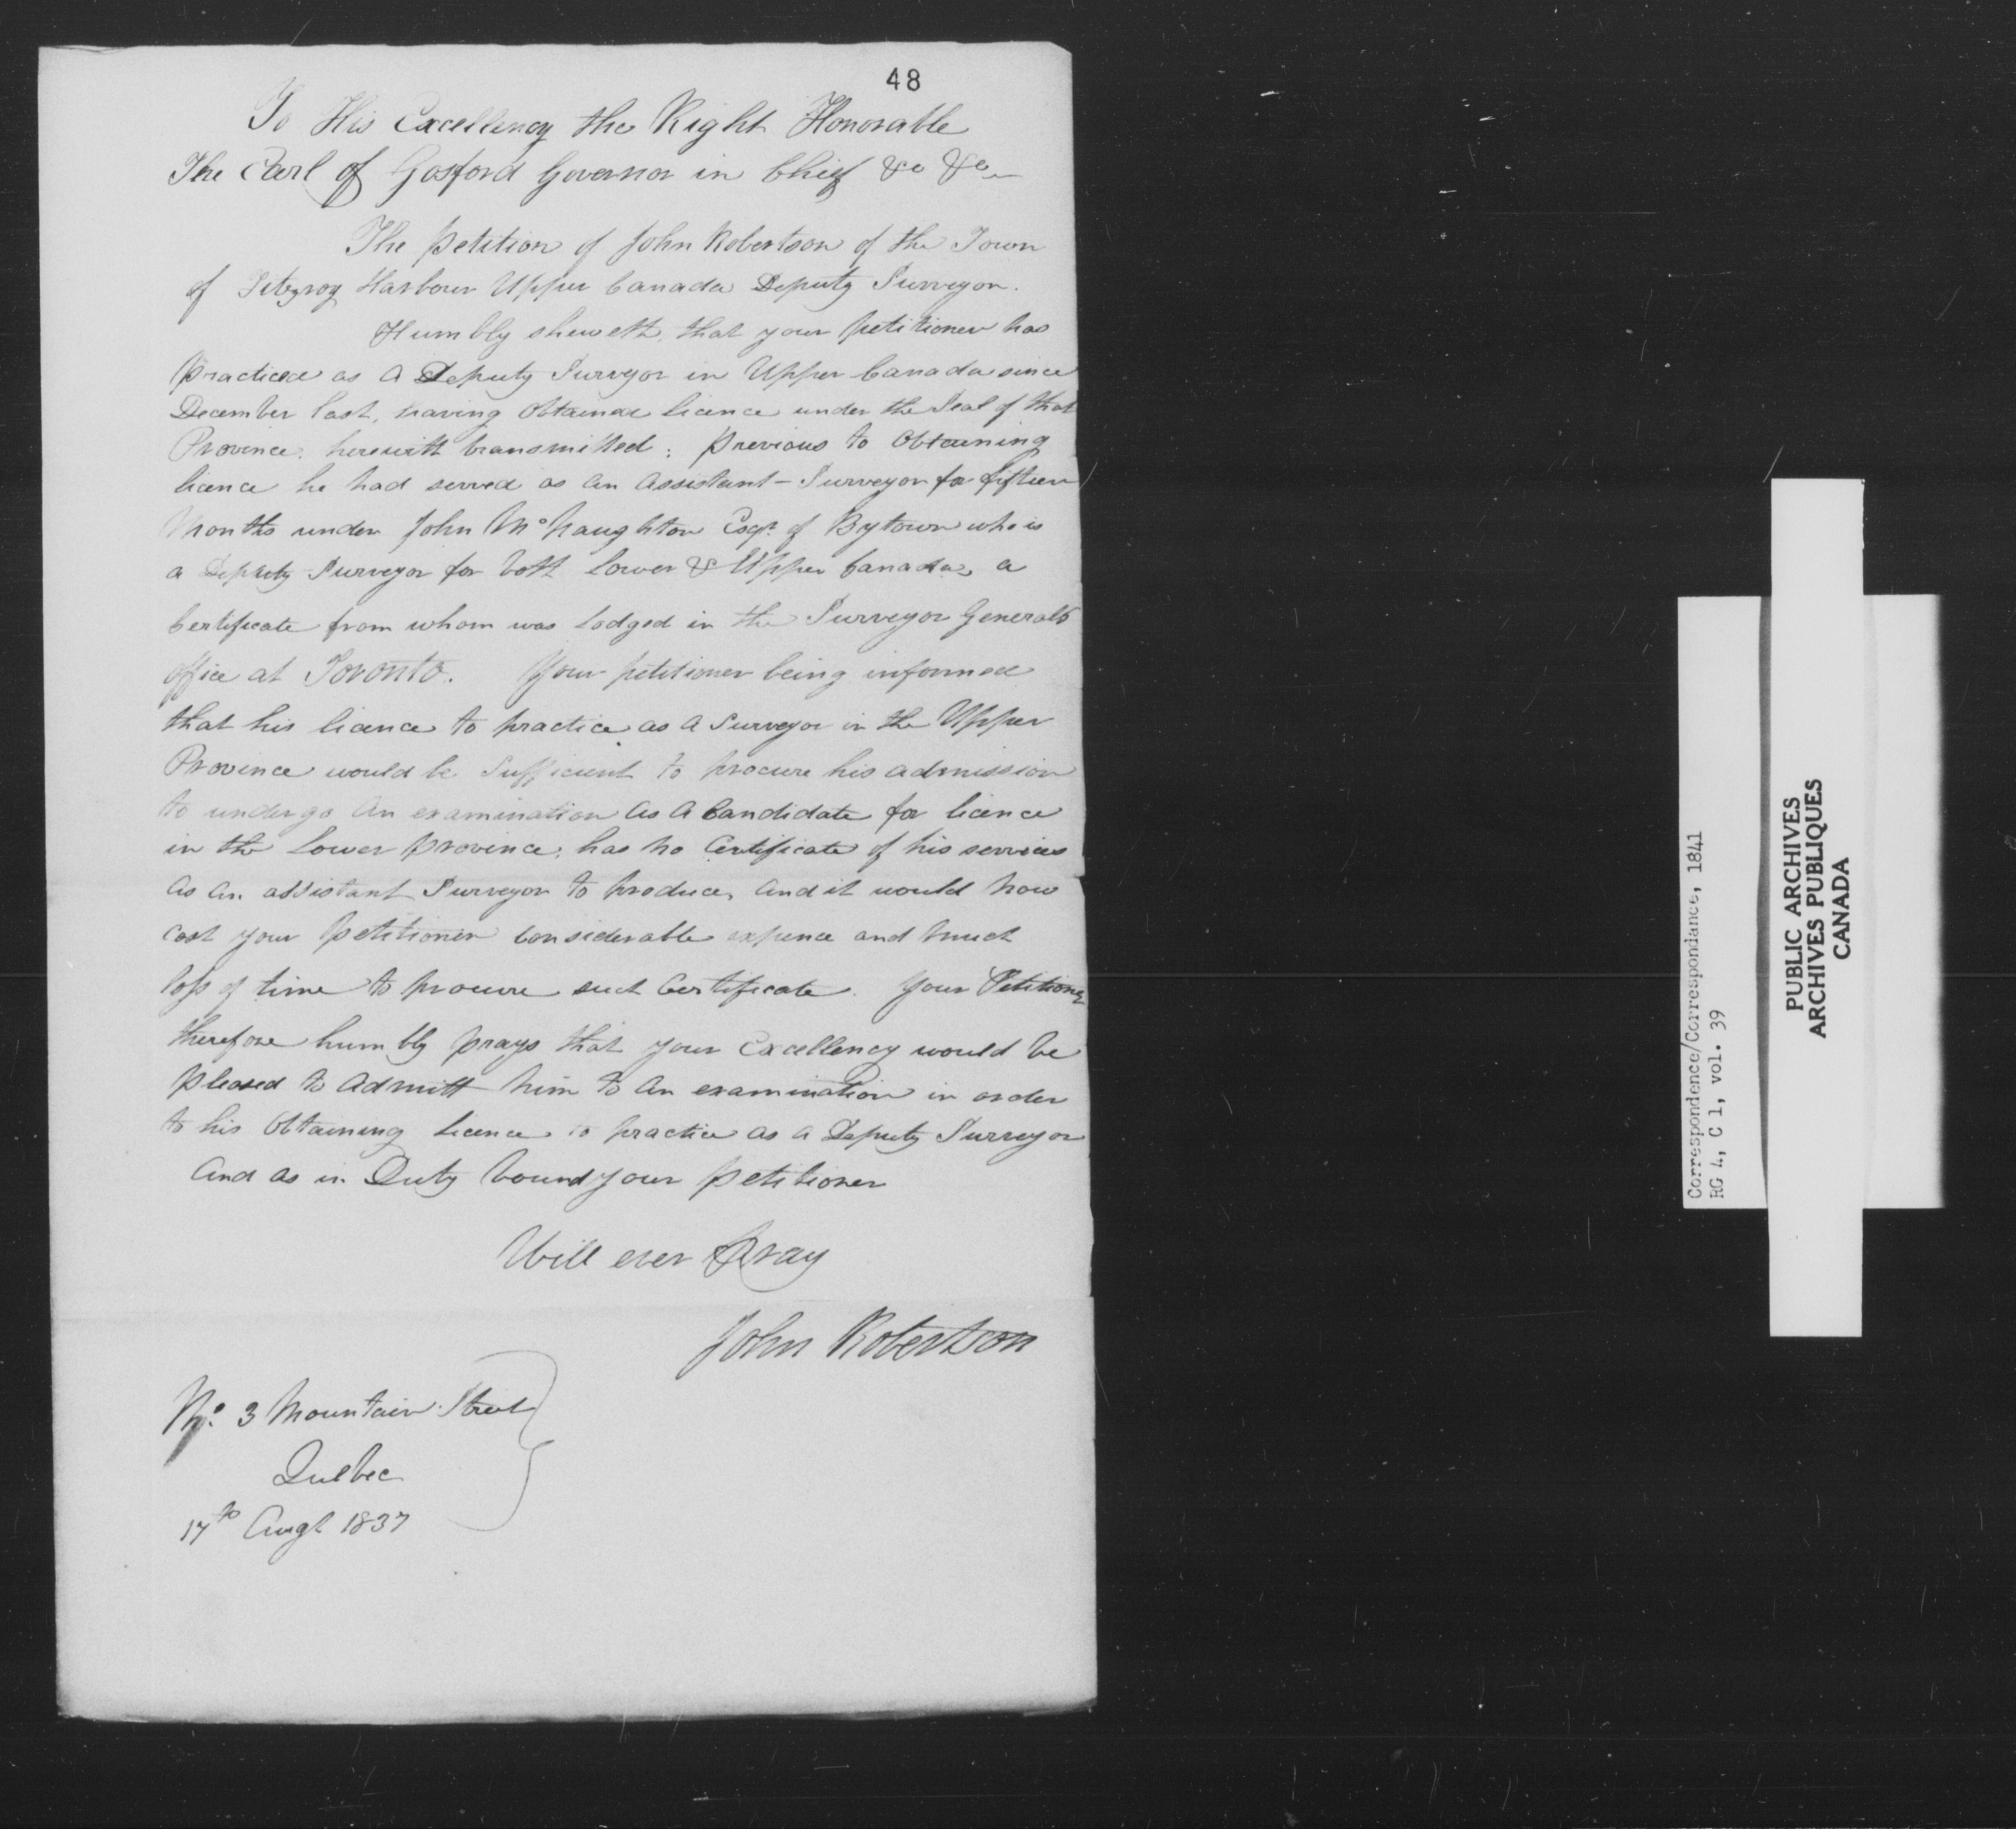 48
To His Excellency the Right Honorable
The Earl of Gosford Governor in Chief &c &c
The Petition of John Robertson of the Town
of Fitzroy Harbour Upper Canada Deputy Surveyor.
Humbly sheweth, that your petitioner has
Practiced as a Deputy Surveyor in Upper Canada since
December last, having Obtained licence under the Seal of that
Province, herewith transmitted; Previous to Obtaining
licence he had served as an Assistant-Surveyor for fifteen
Months under John McNaughton Esqr. of Bytown who is
a Deputy Surveyor for both Lower & Upper Canada, a
Certificate from whom was Lodged in the Surveyor Generals
office at Toronto. Your petitioner being informed
that his licence to practice as a Surveyor in the Upper
Province would be Sufficient to procure his admission
to undergo an examination as a Candidate for licence
in the Lower Province; has no Certificate of his services
as an assistant Surveyor to produce, and it would now
cost your Petitioner Considerable expence and much
loss of time to procure such Certificate. Your Petitioner
therefore humbly prays that your Excellency would be
pleased to Admitt him to an examination in order
to his Obtaining licence to practice as a Deputy Surveyor
And as in Duty bound your Petitioner
Will ever Pray
John Robertson
No. 3 Mountain Street
Quebec
17th Augt 1837
Correspondence/Correspondance, 1841
RG 4, C 1, vol. 39
PUBLIC ARCHIVES
ARCHIVES PUBLIQUES
CANADA